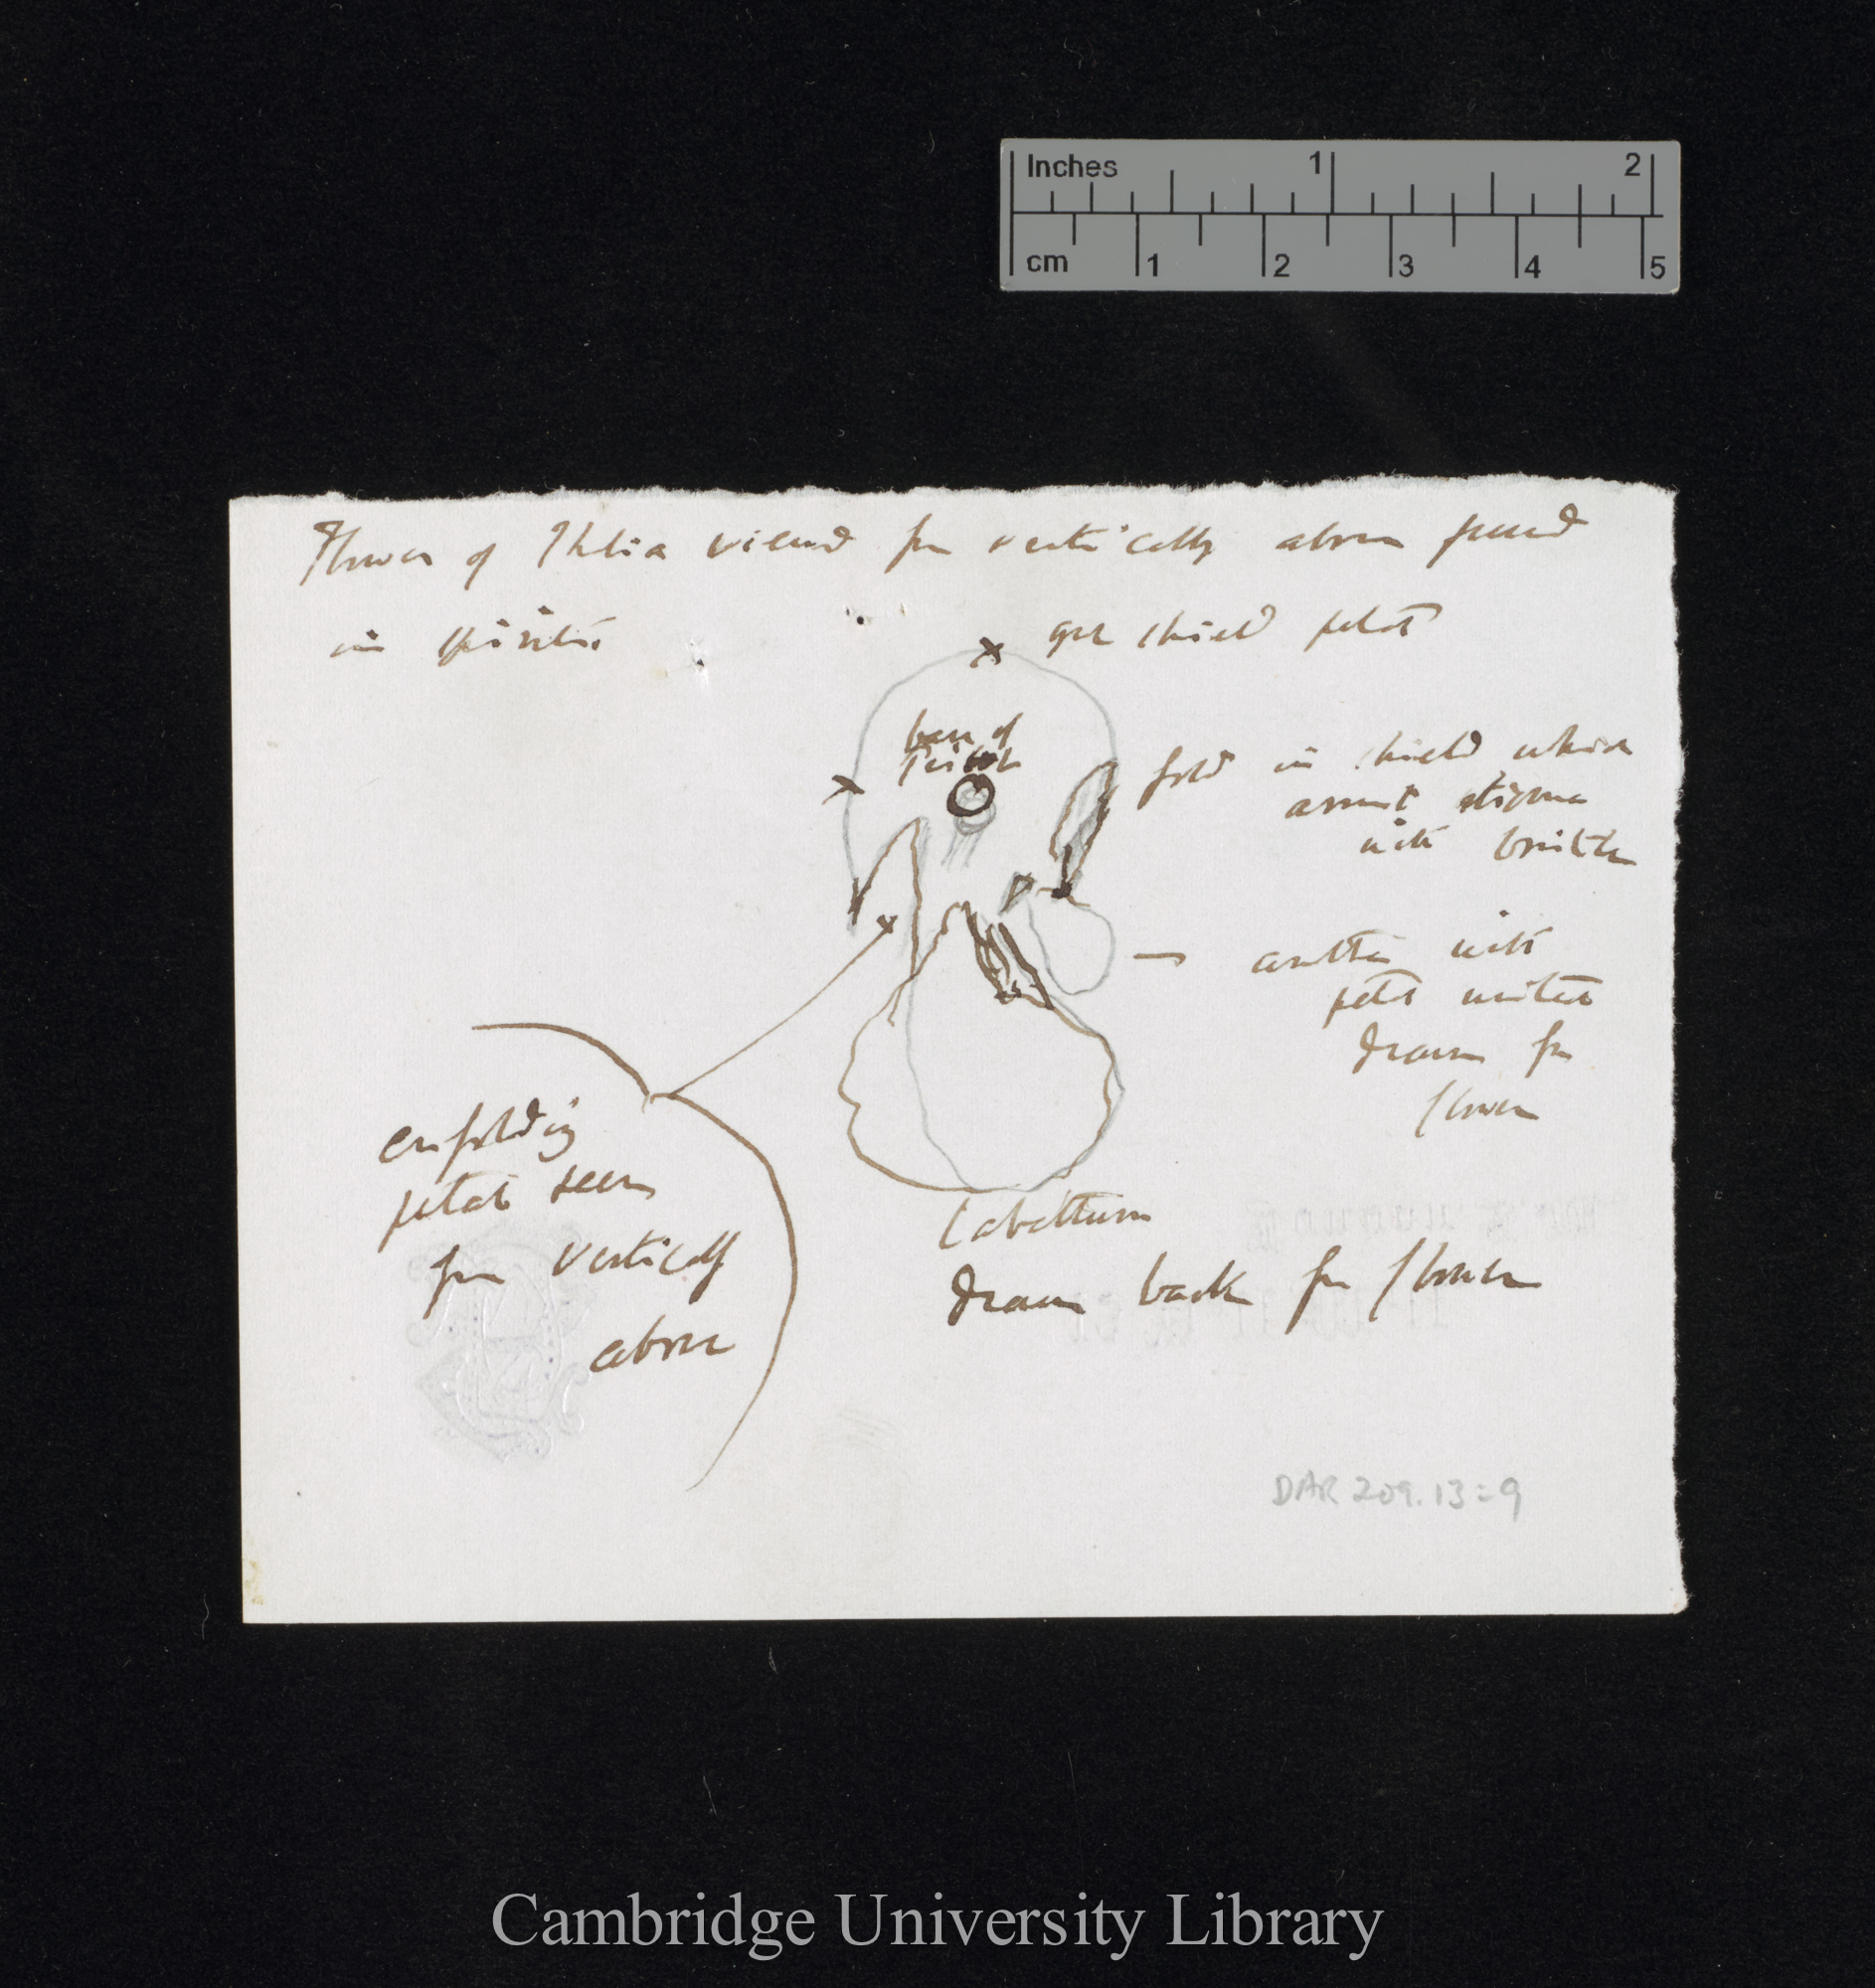 Inches 1 2
cm 1 2 3 4 5
Flower of Thalia viewed from vertically above found
in spirits
great shield petal
base of
Pistil
fold in shield which
stigma
with
anther with
petal united
drawn from
flower
enfolding
petal seen
from vertically
above
Labellum
drawn back from flower
DAR 209.13:9
Cambridge University Library